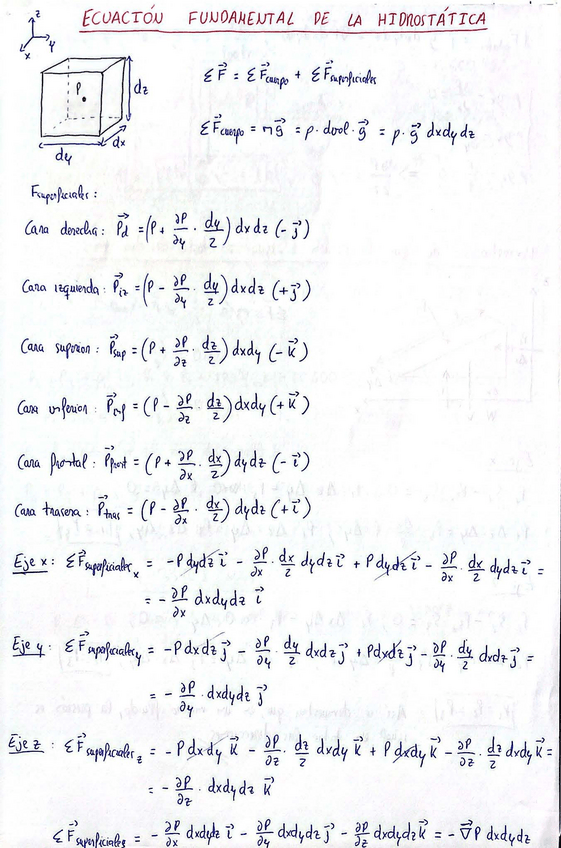 ECUACIÓN FUNDAMENTAL DE LA HIDROSTÁTICA
z
y
x
P
dz
dx
dy
ΣF⃗ = ΣF⃗cuerpo + ΣF⃗superficiales
ΣF⃗cuerpo = m g⃗ = ρ · dvol · g⃗ = ρ · g⃗ dxdydz
Fsuperficiales :
Cara derecha : P⃗d = (P + ∂P/∂y · dy/2) dxdz (-j⃗)
Cara izquierda : P⃗iz = (P - ∂P/∂y · dy/2) dxdz (+j⃗)
Cara superior : P⃗sup = (P + ∂P/∂z · dz/2) dxdy (-k⃗)
Cara inferior : P⃗inf = (P - ∂P/∂z · dz/2) dxdy (+k⃗)
Cara frontal : P⃗front = (P + ∂P/∂x · dx/2) dydz (-i⃗)
Cara trasera : P⃗tras = (P - ∂P/∂x · dx/2) dydz (+i⃗)
Eje x : ΣF⃗superficiales x = -P dydz i⃗ - ∂P/∂x · dx/2 dydz i⃗ + P dydz i⃗ - ∂P/∂x · dx/2 dydz i⃗ =
= - ∂P/∂x dxdydz i⃗
Eje y : ΣF⃗superficiales y = -P dxdz j⃗ - ∂P/∂y · dy/2 dxdz j⃗ + P dxdz j⃗ - ∂P/∂y · dy/2 dxdz j⃗ =
= - ∂P/∂y · dxdydz j⃗
Eje z : ΣF⃗superficiales z = -P dxdy k⃗ - ∂P/∂z · dz/2 dxdy k⃗ + P dxdy k⃗ - ∂P/∂z · dz/2 dxdy k⃗ =
= - ∂P/∂z · dxdydz k⃗
ΣF⃗superficiales = - ∂P/∂x dxdydz i⃗ - ∂P/∂y dxdydz j⃗ - ∂P/∂z dxdydz k⃗ = - ∇⃗P dxdydz